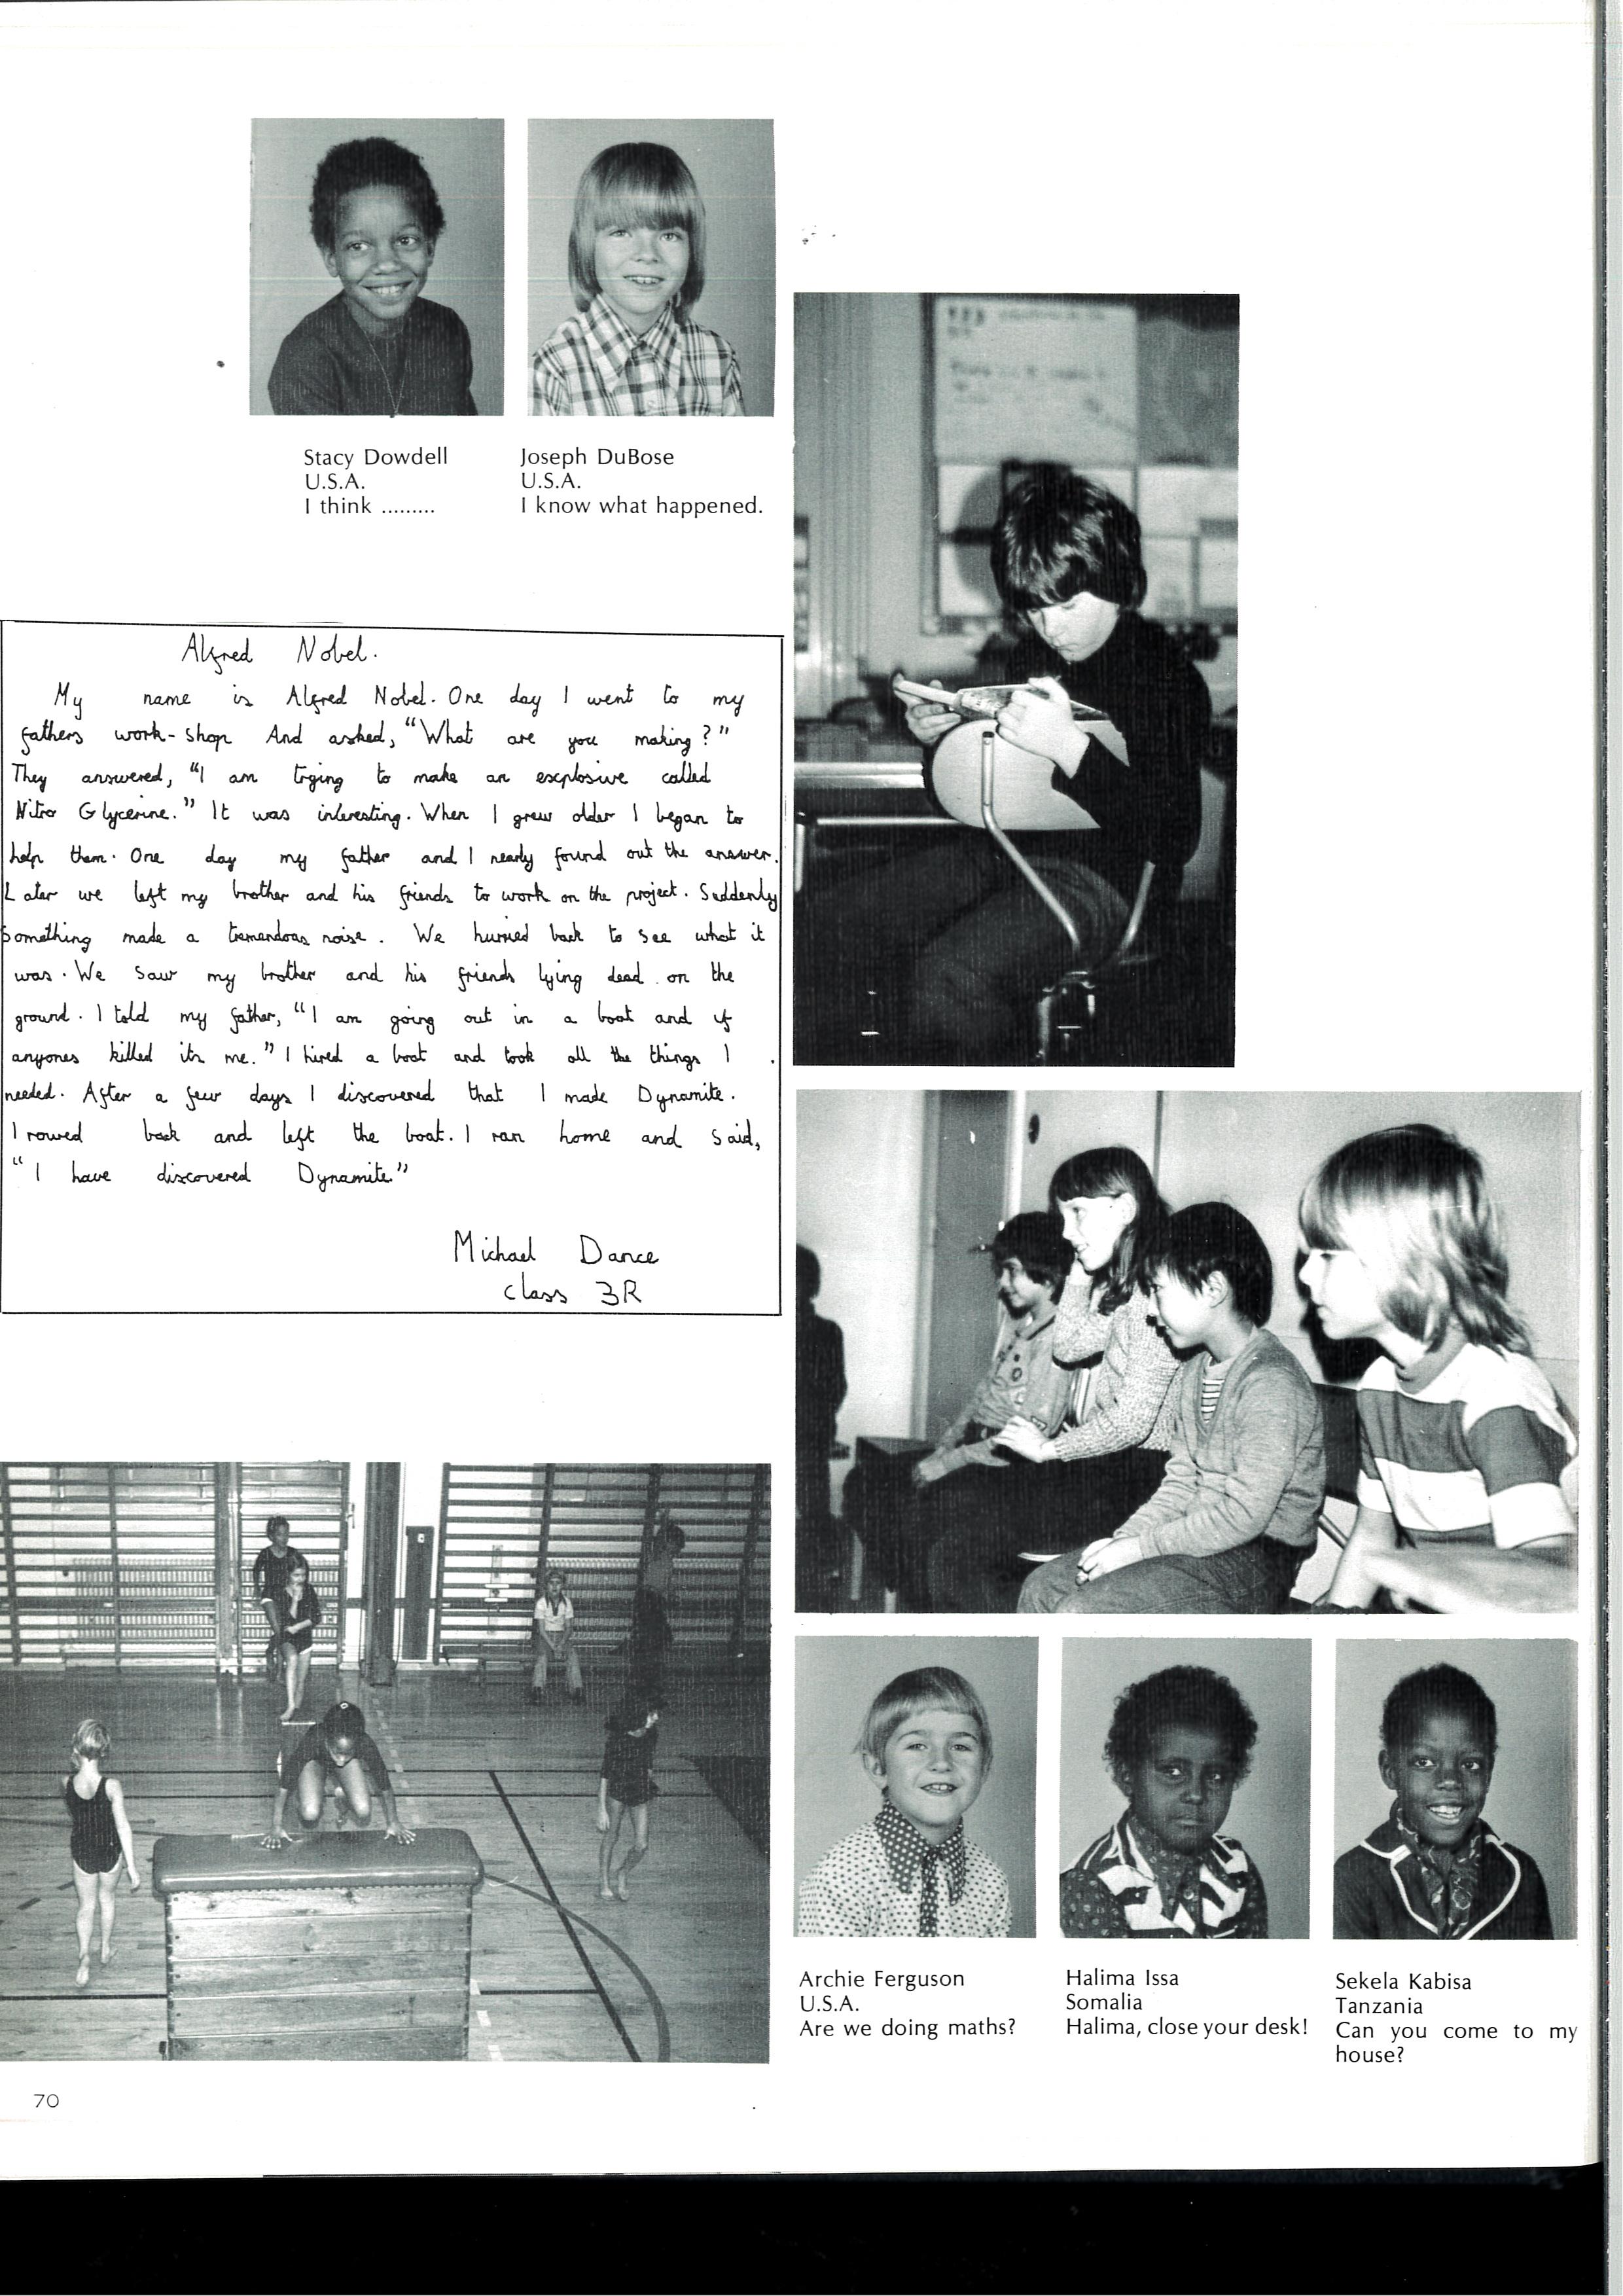 Stacy Dowdell
U.S.A.
I think .........
Joseph DuBose
U.S.A.
I know what happened.
Alfred Nobel.
My name is Alfred Nobel. One day I went to my
fathers work-shop And asked, "What are you making?"
They answered, "I am trying to make an explosive called
Nitro Glycerine." It was interesting. When I grew older I began to
help them. One day my father and I nearly found out the answer.
Later we left my brother and his friends to work on the project. Suddenly
something made a tremendoas noise. We hurried back to see what it
was. We saw my brother and his friends lying dead on the
ground. I told my father, "I am going out in a boat and if
anyones killed its me." I hired a boat and took all the things I
needed. After a few days I discovered that I made Dynamite.
I rowed back and left the boat. I ran home and said,
"I have discovered Dynamite."
Michael Dance
class 3R
Archie Ferguson
U.S.A.
Are we doing maths?
Halima Issa
Somalia
Halima, close your desk!
Sekela Kabisa
Tanzania
Can you come to my
house?
70